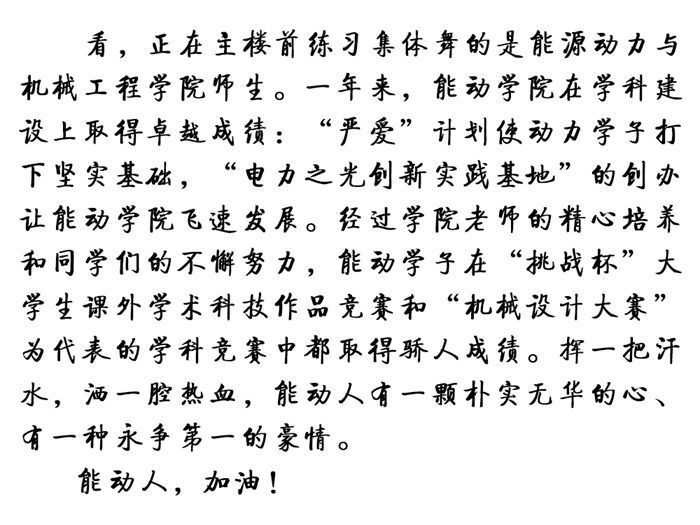 看，正在主楼前练习集体舞的是能源动力与
机械工程学院师生。一年来，能动学院在学科建
设上取得卓越成绩：“严爱”计划使动力学子打
下坚实基础，“电力之光创新实践基地”的创办
让能动学院飞速发展。经过学院老师的精心培养
和同学们的不懈努力，能动学子在“挑战杯”大
学生课外学术科技作品竞赛和“机械设计大赛”
为代表的学科竞赛中都取得骄人成绩。挥一把汗
水，洒一腔热血，能动人有一颗朴实无华的心、
有一种永争第一的豪情。
能动人，加油！